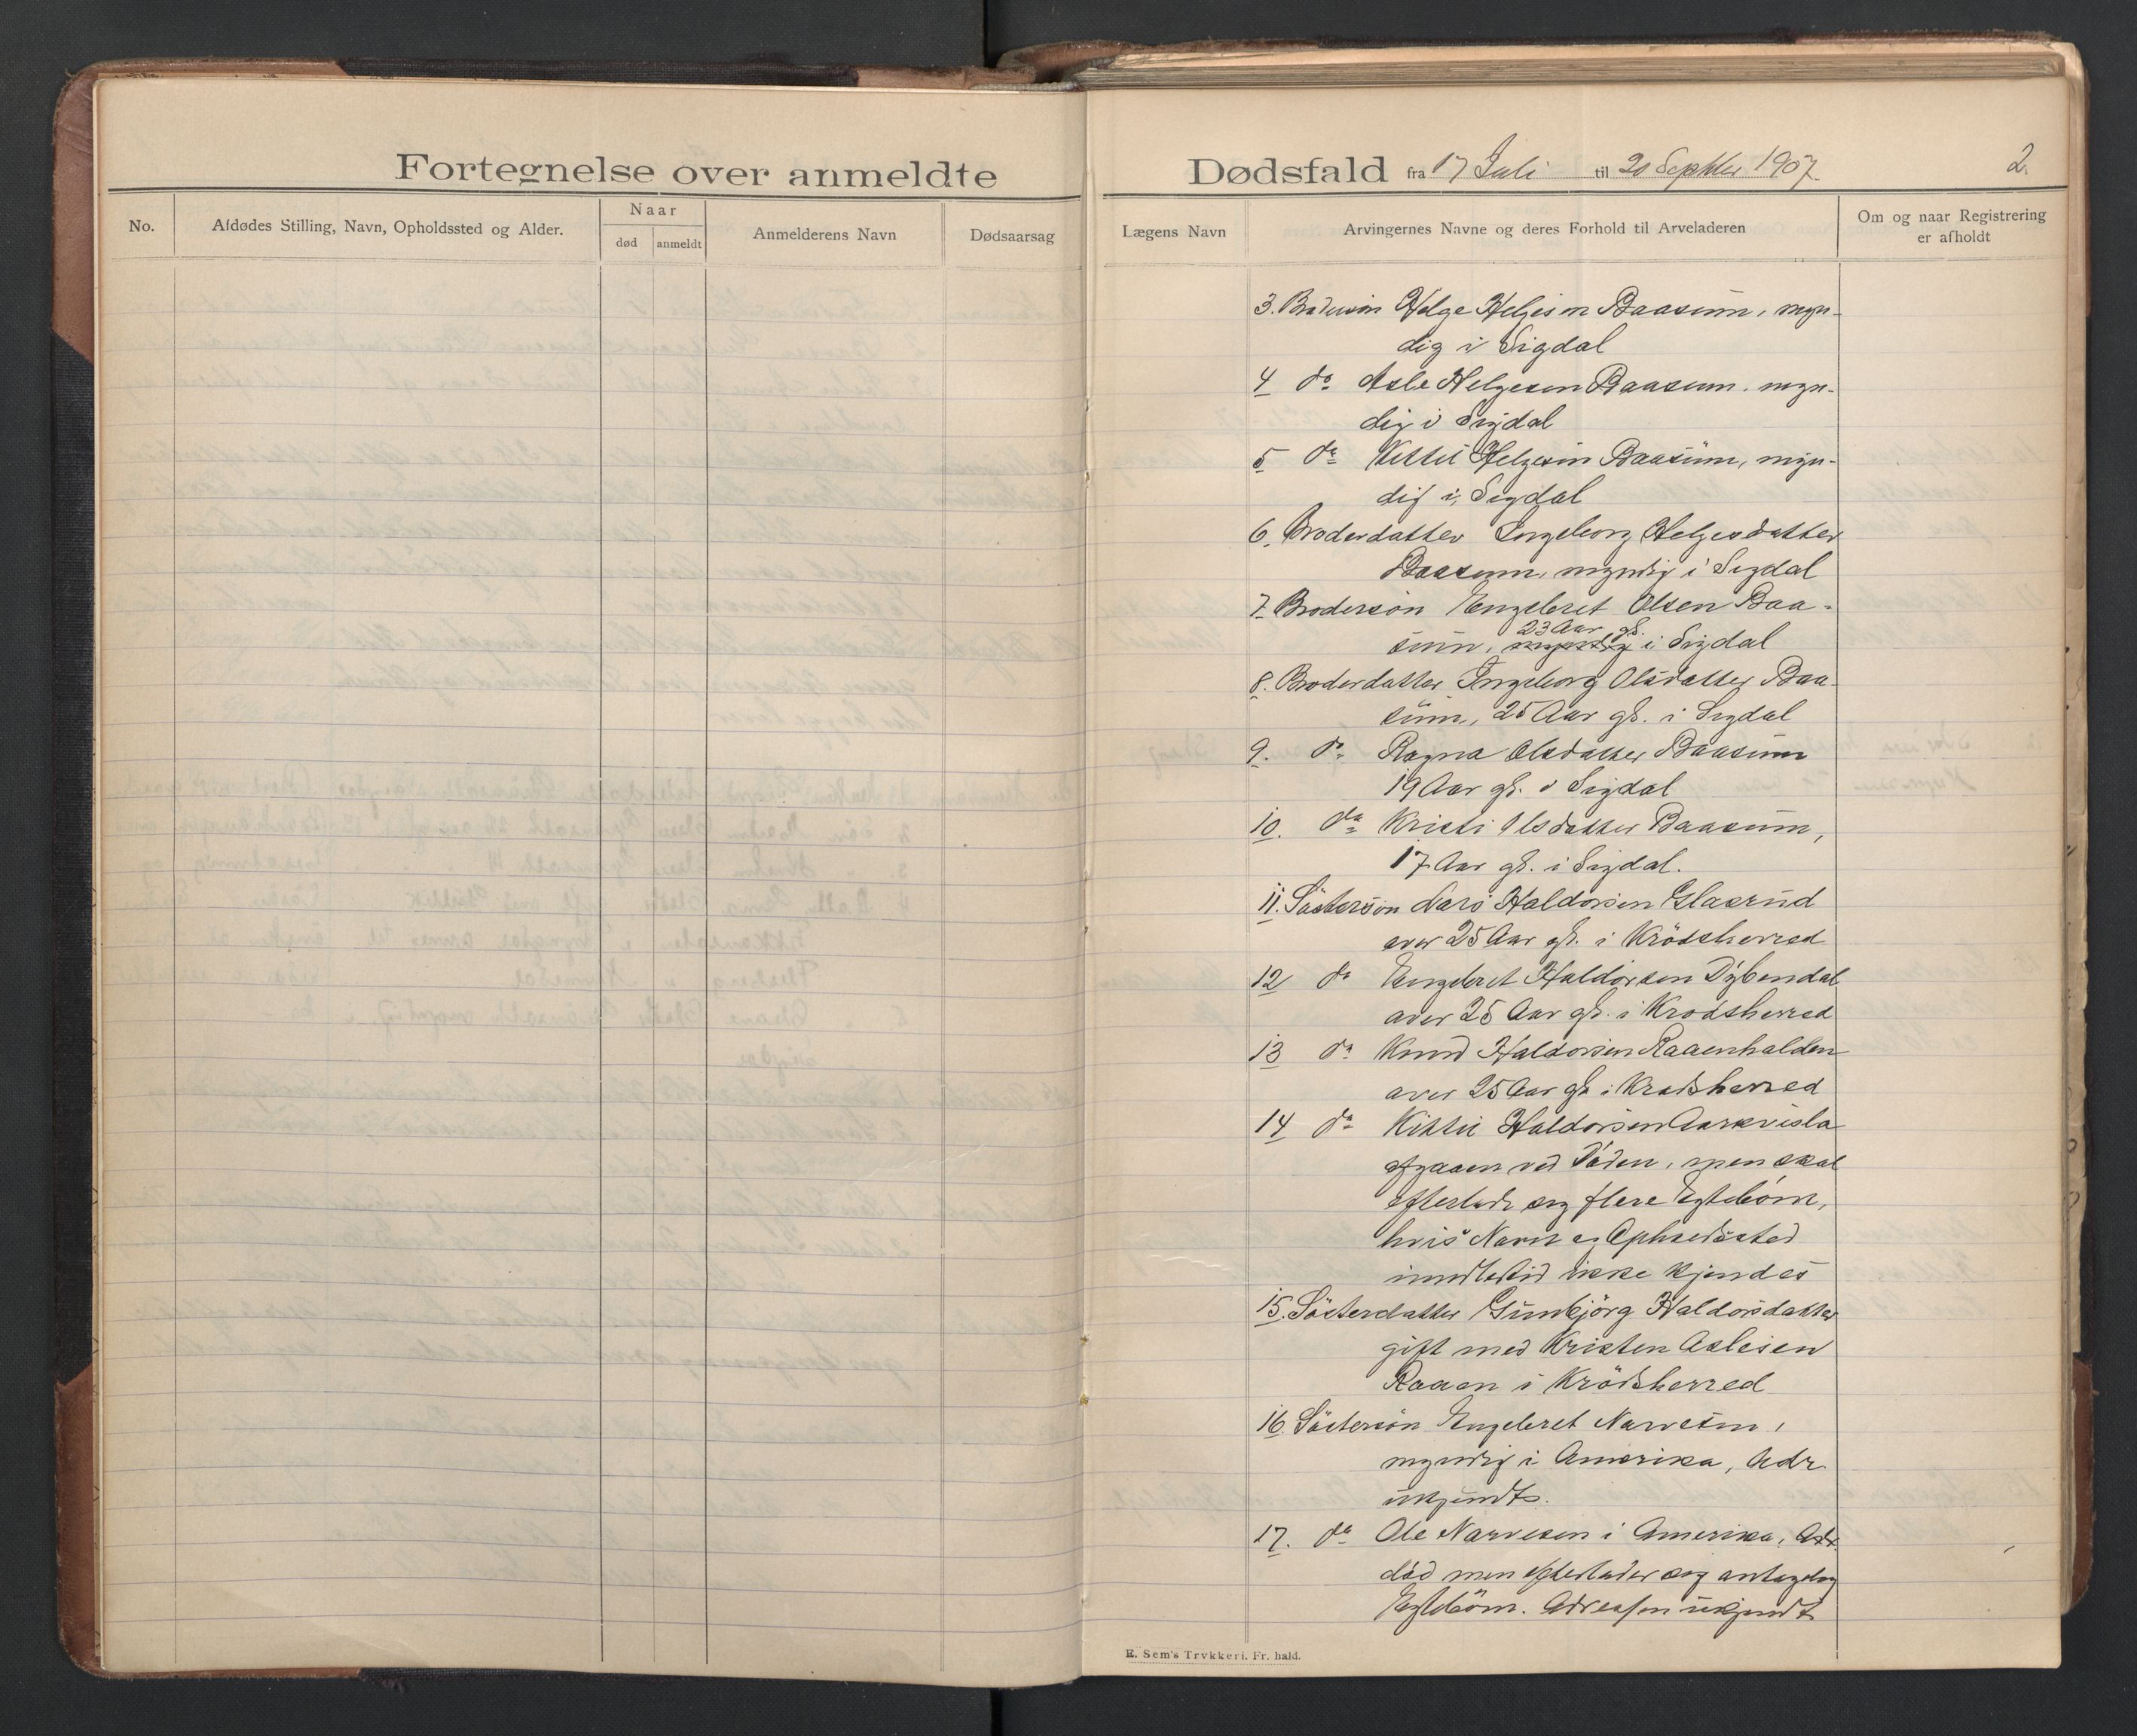 Fortegnelse over anmeldte
No.
Afdødes Stilling, Navn, Opholdssted og Alder.
Naar
død
anmeldt
Anmelderens Navn
Dødsaarsag
Dødsfald fra 17 Juli til 20 Septbler 1907.
2.
Lægens Navn
Arvingernes Navne og deres Forhold til Arveladeren
Om og naar Registrering
er afholdt
3. Brodersön Helge Helgesen Baasum, myn-
dig i Sigdal
4 do Asle Helgesen Baasum, myn-
dig i Sigdal
5 do Kittil Helgesen Baasum, myn-
dig i Sigdal
6. Broderdatter Ingeborg Helgesdatter
Baasum, myndig i Sigdal
7. Brodersön Engebret Olsen Baa-
23 Aar gl.
sum, myndig i Sigdal
8. Broderdatter Ingeborg Olsdatter Baa-
sum, 25 Aar gl. i Sigdal
9. do Ragna Olsdatter Baasum
19 Aar gl. i Sigdal
10. do Kristi Olsdatter Baasum,
17 Aar gl. i Sigdal.
11. Söstersön Lars Haldorsen Glasrud
over 25 Aar gl. i Krödsherred
12 do Engebret Haldorsen Dybendal
over 25 Aar gl. i Krödsherred
13 do Knud Haldorsen Raaenhalden
over 25 Aar gl. i Krödsherred
14 do Kittil Haldorsen Aarkvisla
afgaaen ved Döden, men skal
efterlade sig flere Egtebörn,
hvis Navn og Opholdssted
imidlertid ikke kjendes
15. Sösterdatter Gunbjörg Haldorsdatter
gift med Kristen Aslesen
Raaen i Krödsherred
16. Söstersön Engebret Narvesen,
myndig i Amerika, Adr.
ukjendt.
17. do Ole Narvesen i Amerika, Adr.
död men efterlader sig antagelig
Egtebörn. Adressen ukjendt
R. Sem's Trykkeri. Fr. hald.